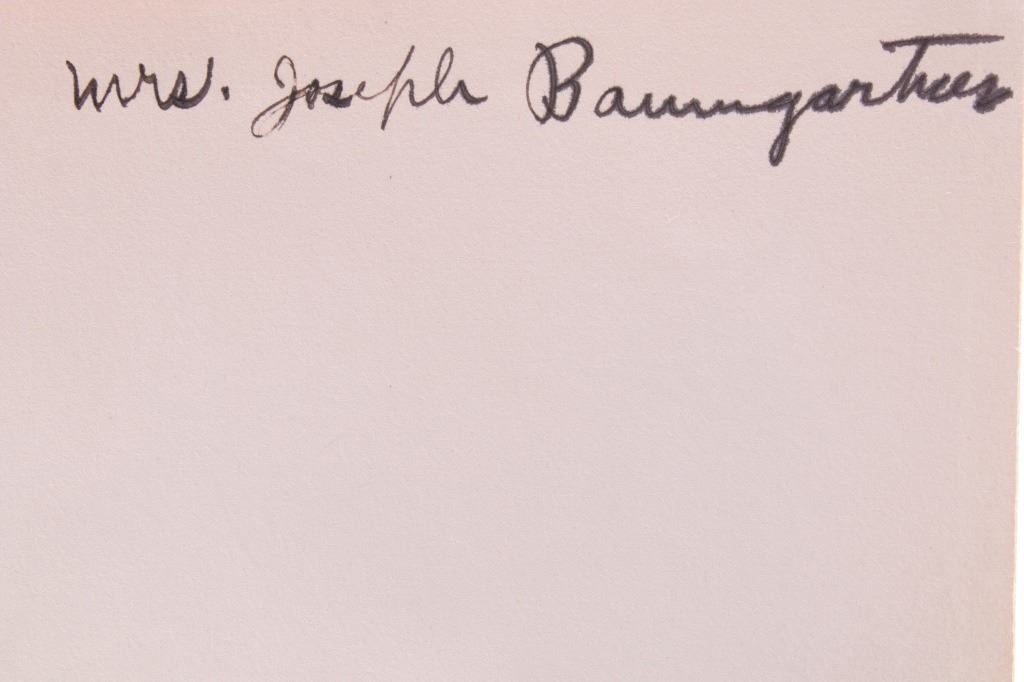 Mrs. Joseph Baumgartner